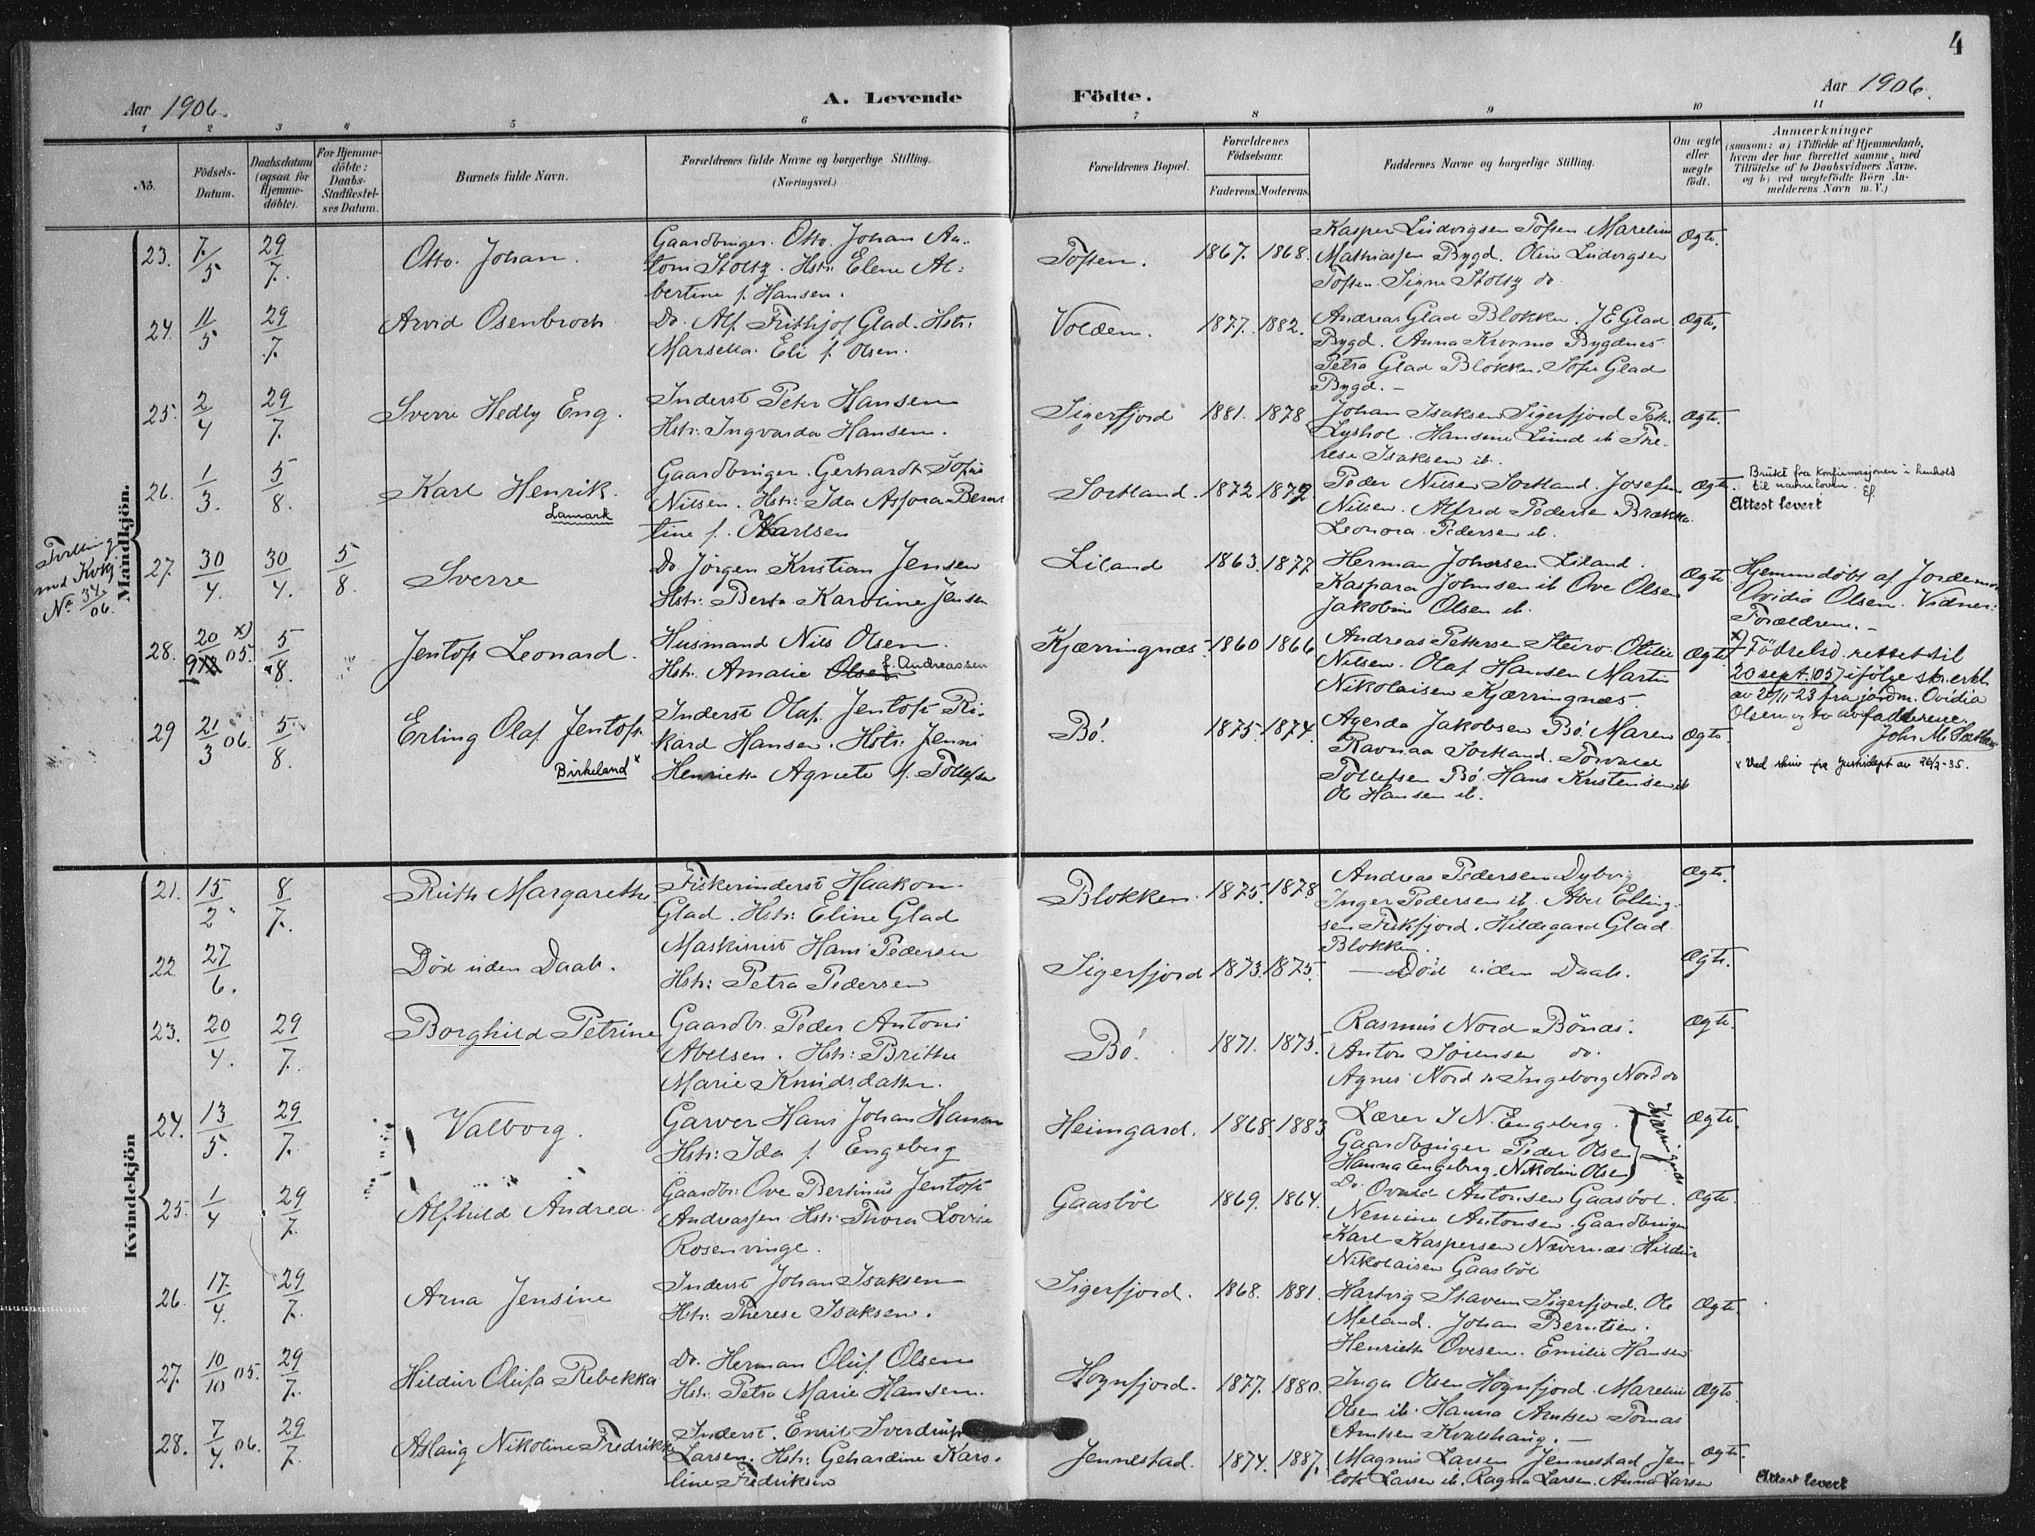 4
Aar 1906.
A. Levende
Födte.
Aar 1906.
1 2 3 4 5 6 7 8 9 10 11
No.
Födsels-
Datum.
Daabsdatum
(ogsaa for
Hjemme-
döbte).
For Hjemme-
döbte:
Daabs-
Stadfæstel-
ses Datum.
Barnets fulde Navn.
Forældrenes fulde Navne og borgerlige Stilling.
(Næringsvei.)
Forældrenes Bopæl.
Forældrenes
Födselsaar.
Faderens. Moderens.
Faddernes Navne og borgerlige Stilling.
Om ægte
eller
uægte
födt.
Anmærkninger
(saasom: a) i Tilfælde af Hjemmedaab,
hvem der har forrettet samme, med
Tilföielse af to Daabsvidners Navne,
og b) ved uægtefödte Börn An-
melderens Navn m. V.)
Mandkjön.
23. 7/5 29/7. Otto Johan.
Gaardbruger. Otto Johan An-
toni Stoltz. Hstr: Elene Al-
bertine f. Hansen.
Tofsen. 1867. 1868.
Kasper Ludvigsen Tofsen Marelin
Mathiassen Bygd. Olin Ludvigsen
Tofsen. Signe Stoltz do
Ægte.
24. 11/5 29/7 Arvid Osenbroch
Do. Alf Frithjof Glad. Hstr:
Marsella Eli f. Olsen.
Volden. 1877. 1882.
Andreas Glad Blokken. J E Glad
Bygd. Anna Kromo Bygdnes
Petra Glad Blokken. Sofie Glad
Bygd. –
Ægte.
25. 2/4 29/7. Sverre Hedly Eng.
Inderst Peter Hansen
Hstr: Ingvarda Hansen.
Sigerfjord 1881. 1878.
Johan Isaksen Sigerfjord Petr.
Lyshol. Hansine Lund ib. The-
rese Isaksen ib.
Ægte.
26. 1/3. 5/8. Karl Henrik.
Lamark
Gaardbruger. Gerhardt Tofin
Nilsen. Hstr: Ida Asfora Bernt
tine f. Karlsen
Sortland. 1872. 1879
Peder Nilsen Sortland. Josefin
Nilsen. Alfred Pedersen Brækka.
Leonora Pedersen ib.
Ægte.
Brukt fra konfirmasjonen i henhold
til navneloven. Ef.
Attest levert
Tvilling
med Kvkj
No 34/06.
27. 30/4. 30/4. 5/8. Sverre
Do Jörgen Kristian Jensen
Hstr: Berta Karoline Jensen
Liland 1863. 1877.
Herman Johnsen Liland.
Kaspara Johnsen ib Ove Olsen
Jakobine Olsen ib.
Ægte
Hjemmdöbt af Jordemor
Ovidia Olsen. Vidner:
Forældrene. –
28. 20/9 05. x) 5/8. Jentoft Leonard.
Husmand Nils Olsen.
Hstr: Amalie Olsen f. Andreassen
Kjærringnæs. 1860 1866
Andreas Pettersen Steiro Otilie
Nilsen. Olaf Hansen Martin
Nikolaisen Kjærringnæs.
Ægte
x) Födselsd. rettet til
20 sept. (05) ifölge skr. erkl.
av 20/11-23 fra jordm. Ovidia
Olsen og to av fadderene.
John M. Sæther
29 21/3 06. 5/8. Erling Olaf Jentoft.
Birkeland x
Inderst Olaf Jentoft Ri-
kard Hansen. Hstr: Jenni
Henriette Agnete f. Tollefsen
Bö. 1875. 1874.
Agerda Jakobsen Bö. Maren
Ravnaa Sortland. Torvald
Tollefsen Bö. Hans Kristensen ib
Ole Hansen ib.
Ægte.
x Ved skriv fra Justisdept av 26/2-35.
Kvindekjön
21. 15/2. 8/7. Ruth Margarethe
Fiskerinderst Haakon
Glad. Hstr: Eline Glad
Blokken. 1875. 1878
Andreas Pedersen Dybvig
Inger Pedersen ib. Abel Elling-
sen Fiskfjord. Hildegard Glad
Blokken.
Ægte.
22 27/6. Död uden Daab.
Maskinist Hans Pedersen
Hstr: Petra Pedersen
Sigerfjord 1873. 1875.
– Död uden Daab.
Ægte.
23. 20/4. 29/7. Borghild Petrine
Gaardbr. Peder Antoni
Abelsen. Hstr: Brithe
Marie Knudsdatter.
Bö. 1871. 1875.
Rasmus Nord Bönas.
Anton Sörensen do.
Agnes Nord do Ingeborg Nord do
Ægte.
24. 13/5. 29/7. Valborg.
Garver Hans Johan Hansen
Hstr: Ida f. Engeberg
Heimgard. 1868. 1883.
Lærer J N. Engeberg.
Gaardbruger Peder Olsen
Hanna Engeberg. Nikolin Olsen
Kjærringnæs
Ægte.
25. 1/4 29/7. Alfhild Andrea
Gaardbr. Ove Bertinus Jentoft
Andreassen Hstr: Thora Lovise
Rosenvinge.
Gaasböl 1869. 1864.
Do. Antonsen Gaasböl.
Nemine Antonsen. Gaardbruger
Karl Kaspersen Nævernæs. Hildur
Nikolaisen Gaasböl
Ægte.
26. 17/4. 29/7. Arna Jensine
Inderst Johan Isaksen
Hstr: Therese Isaksen.
Sigerfjord. 1868. 1881.
Hartvig Stavem Sigerfjord. Ole
Meland. Johan Berntsen.
Henriette Ovesen. Emilie Hansen
Ægte.
27. 10/10 05. 29/7. Hildur Olufa Rebekka
Do. Herman Oluf Olsen
Hstr: Petra Marie Hansen.
Hognfjord. 1877. 1880.
Inga Olsen Hognfjord. Marelin
Olsen ib. Hanna Arntsen Tomas
Arntsen Kvalshaug. –
Ægte
28. 7/4. 06. 29/7. Aslaug Nikoline Fredrikke
Inderst. Emil Sverdrup
Larsen. Hstr: Gehardine Karo-
line Fredriksen
Jennestad. 1874. 1887.
Magnus Larsen Jennestad Jen-
toft Larsen ib. Ragna Larsen. Anna Larsen
Ægte.
Attest levert